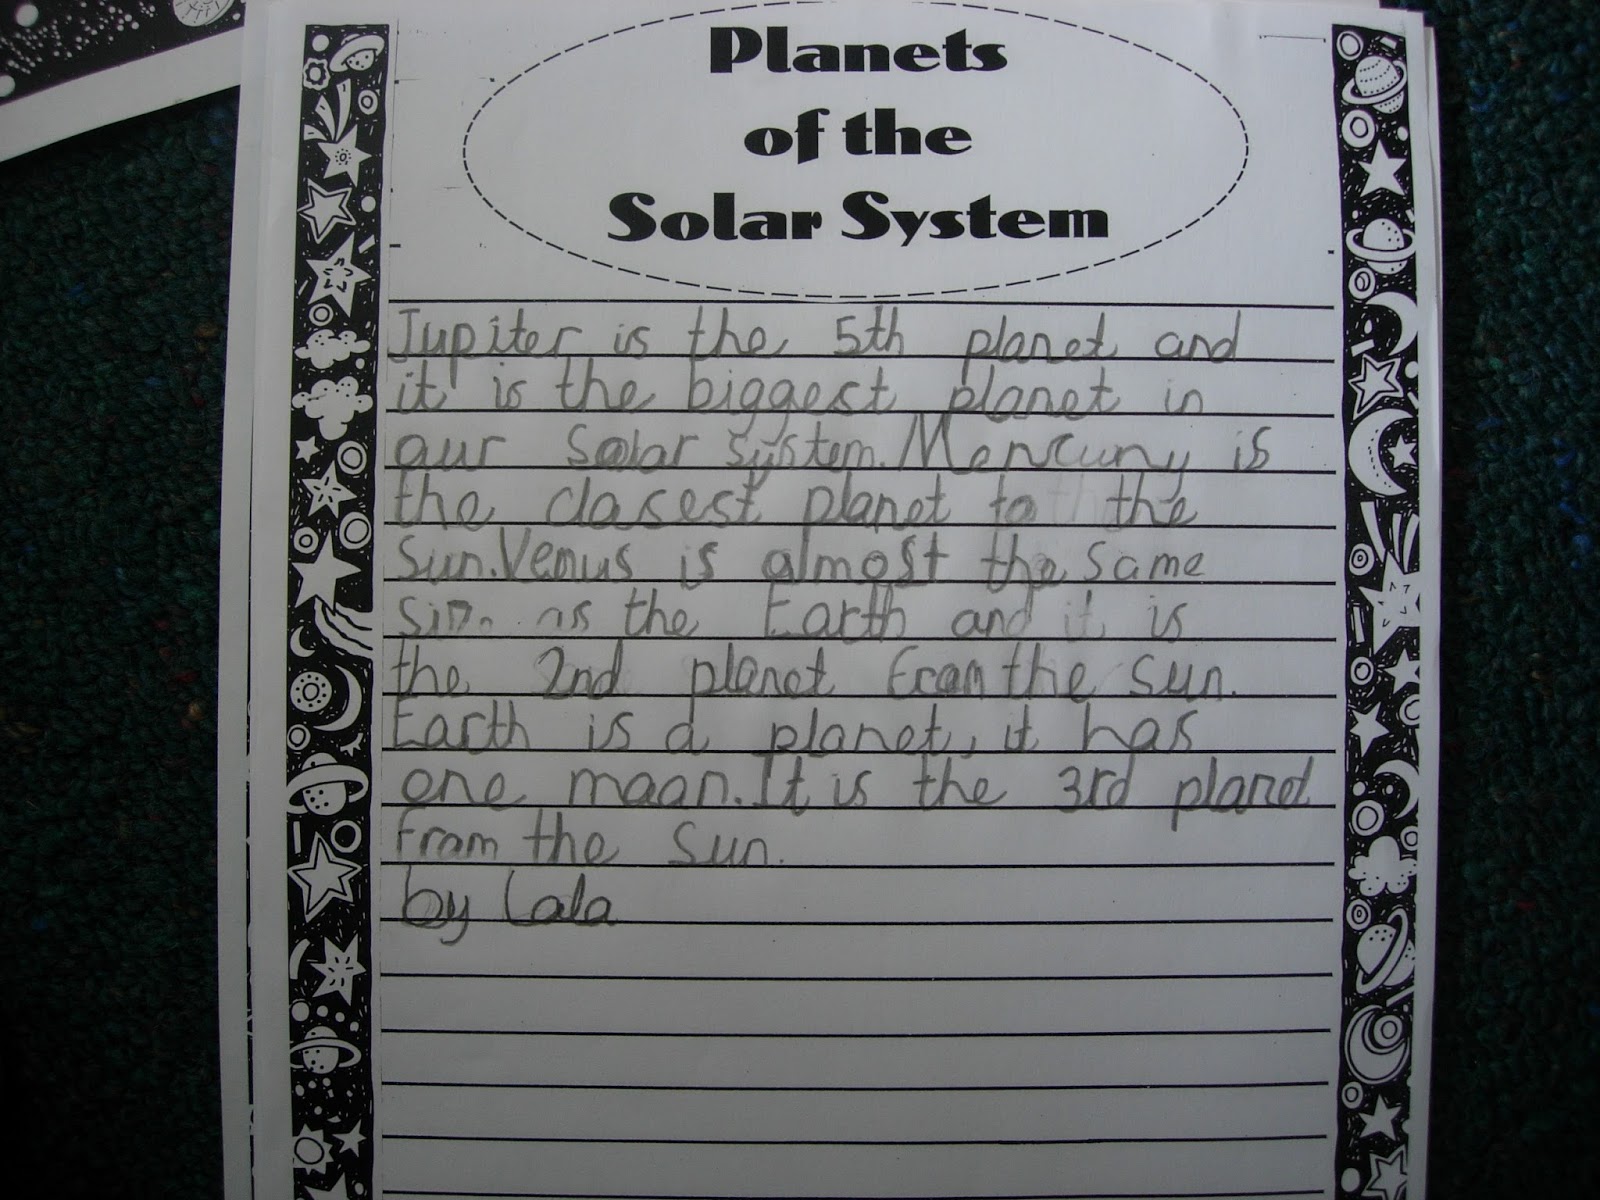 Planets
of the
Solar System
Jupiter is the 5th planet and
it is the biggest planet in
our solar system. Mercuny is
the closest planet to the
sun. Venus is almost the same
as the Earth and it is
the 2nd planet from the sun.
Earth is a planet, it has
one moon. It is the 3rd planet
from the sun.
by Lala